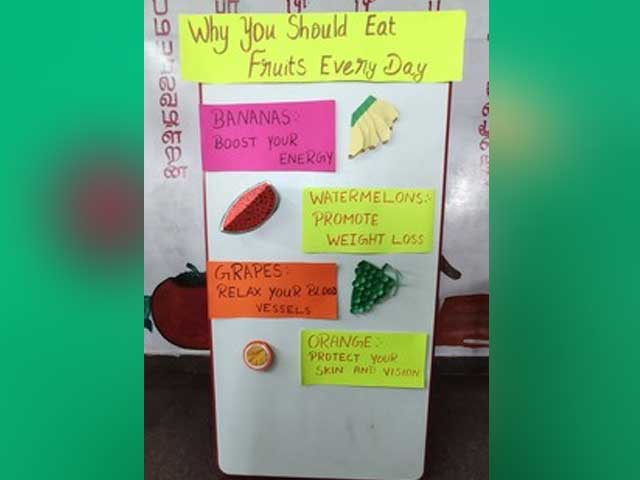 Why You Should Eat
Fruits Every Day
BANANAS:-
BOOST YOUR
ENERGY
WATERMELONS:-
PROMOTE
WEIGHT LOSS
GRAPES:-
RELAX YOUR BLOOD
VESSELS
ORANGE:-
PROTECT YOUR
SKIN AND VISION